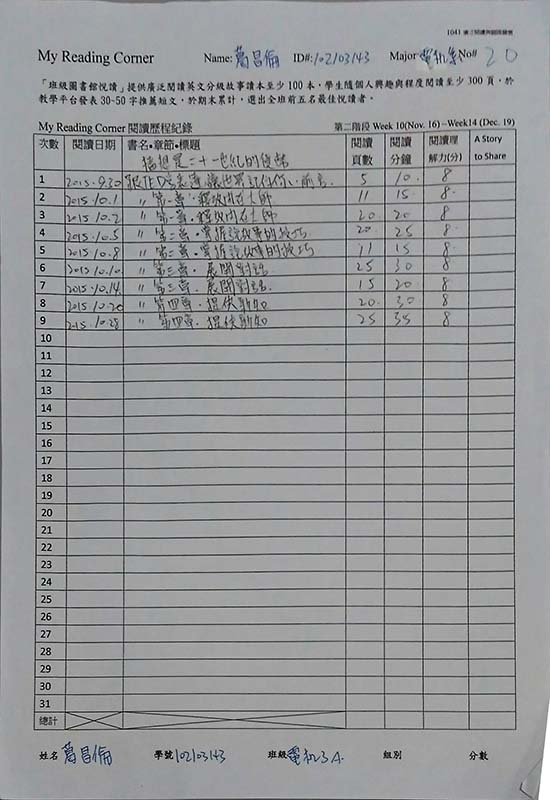 1041 廣泛閱讀與翻閱競賽
My Reading Corner Name: 萬昌倫 ID#: 102103143 Major 電機系 No# 20
「班級圖書館悅讀」提供廣泛閱讀英文分級故事讀本至少 100 本,學生隨個人興趣與程度閱讀至少 300 頁,於
教學平台發表 30-50 字推薦短文,於期末累計,選出全班前五名最佳悅讀者。
My Reading Corner 閱讀歷程紀錄 第二階段 Week 10(Nov. 16) –Week14 (Dec. 19)
次數 閱讀日期 書名•章節•標題 閱讀頁數 閱讀分鐘 閱讀理解力(分) A Story to Share
思想是二十一世紀的貨幣
1 2015.9.30 跟TED學表達,讓世界記住你、前言 5 10 8
2 2015.10.1 〃 第一章、釋放內在大師 11 15 8
3 2015.10.2 〃 第一章、釋放內在大師 20 20 8
4 2015.10.5 〃 第二章、掌握說故事的技巧 20 25 8
5 2015.10.8 〃 第二章、掌握說故事的技巧 11 15 8
6 2015.10.10 〃 第三章、展開對話 25 30 8
7 2015.10.14 〃 第三章、展開對話 15 20 8
8 2015.10.20 〃 第四章、提供新知 20 30 8
9 2015.10.28 〃 第四章、提供新知 25 35 8
10
11
12
13
14
15
16
17
18
19
20
21
22
23
24
25
26
27
28
29
30
31
總計
姓名 萬昌倫 學號 102103143 班級 電機3A 組別 分數